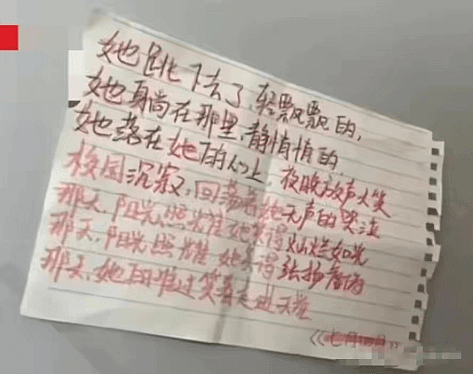 她跳下去了,轻飘飘的,
她身尚在那里,静悄悄的,
她落在她的心上,夜晚放声大笑
校园沉寂,回荡着她无声的哭泣
那天,阳光照耀她笑得灿烂如光
那天,阳光照耀,她笑得张扬
那天,她走进天堂
《七月